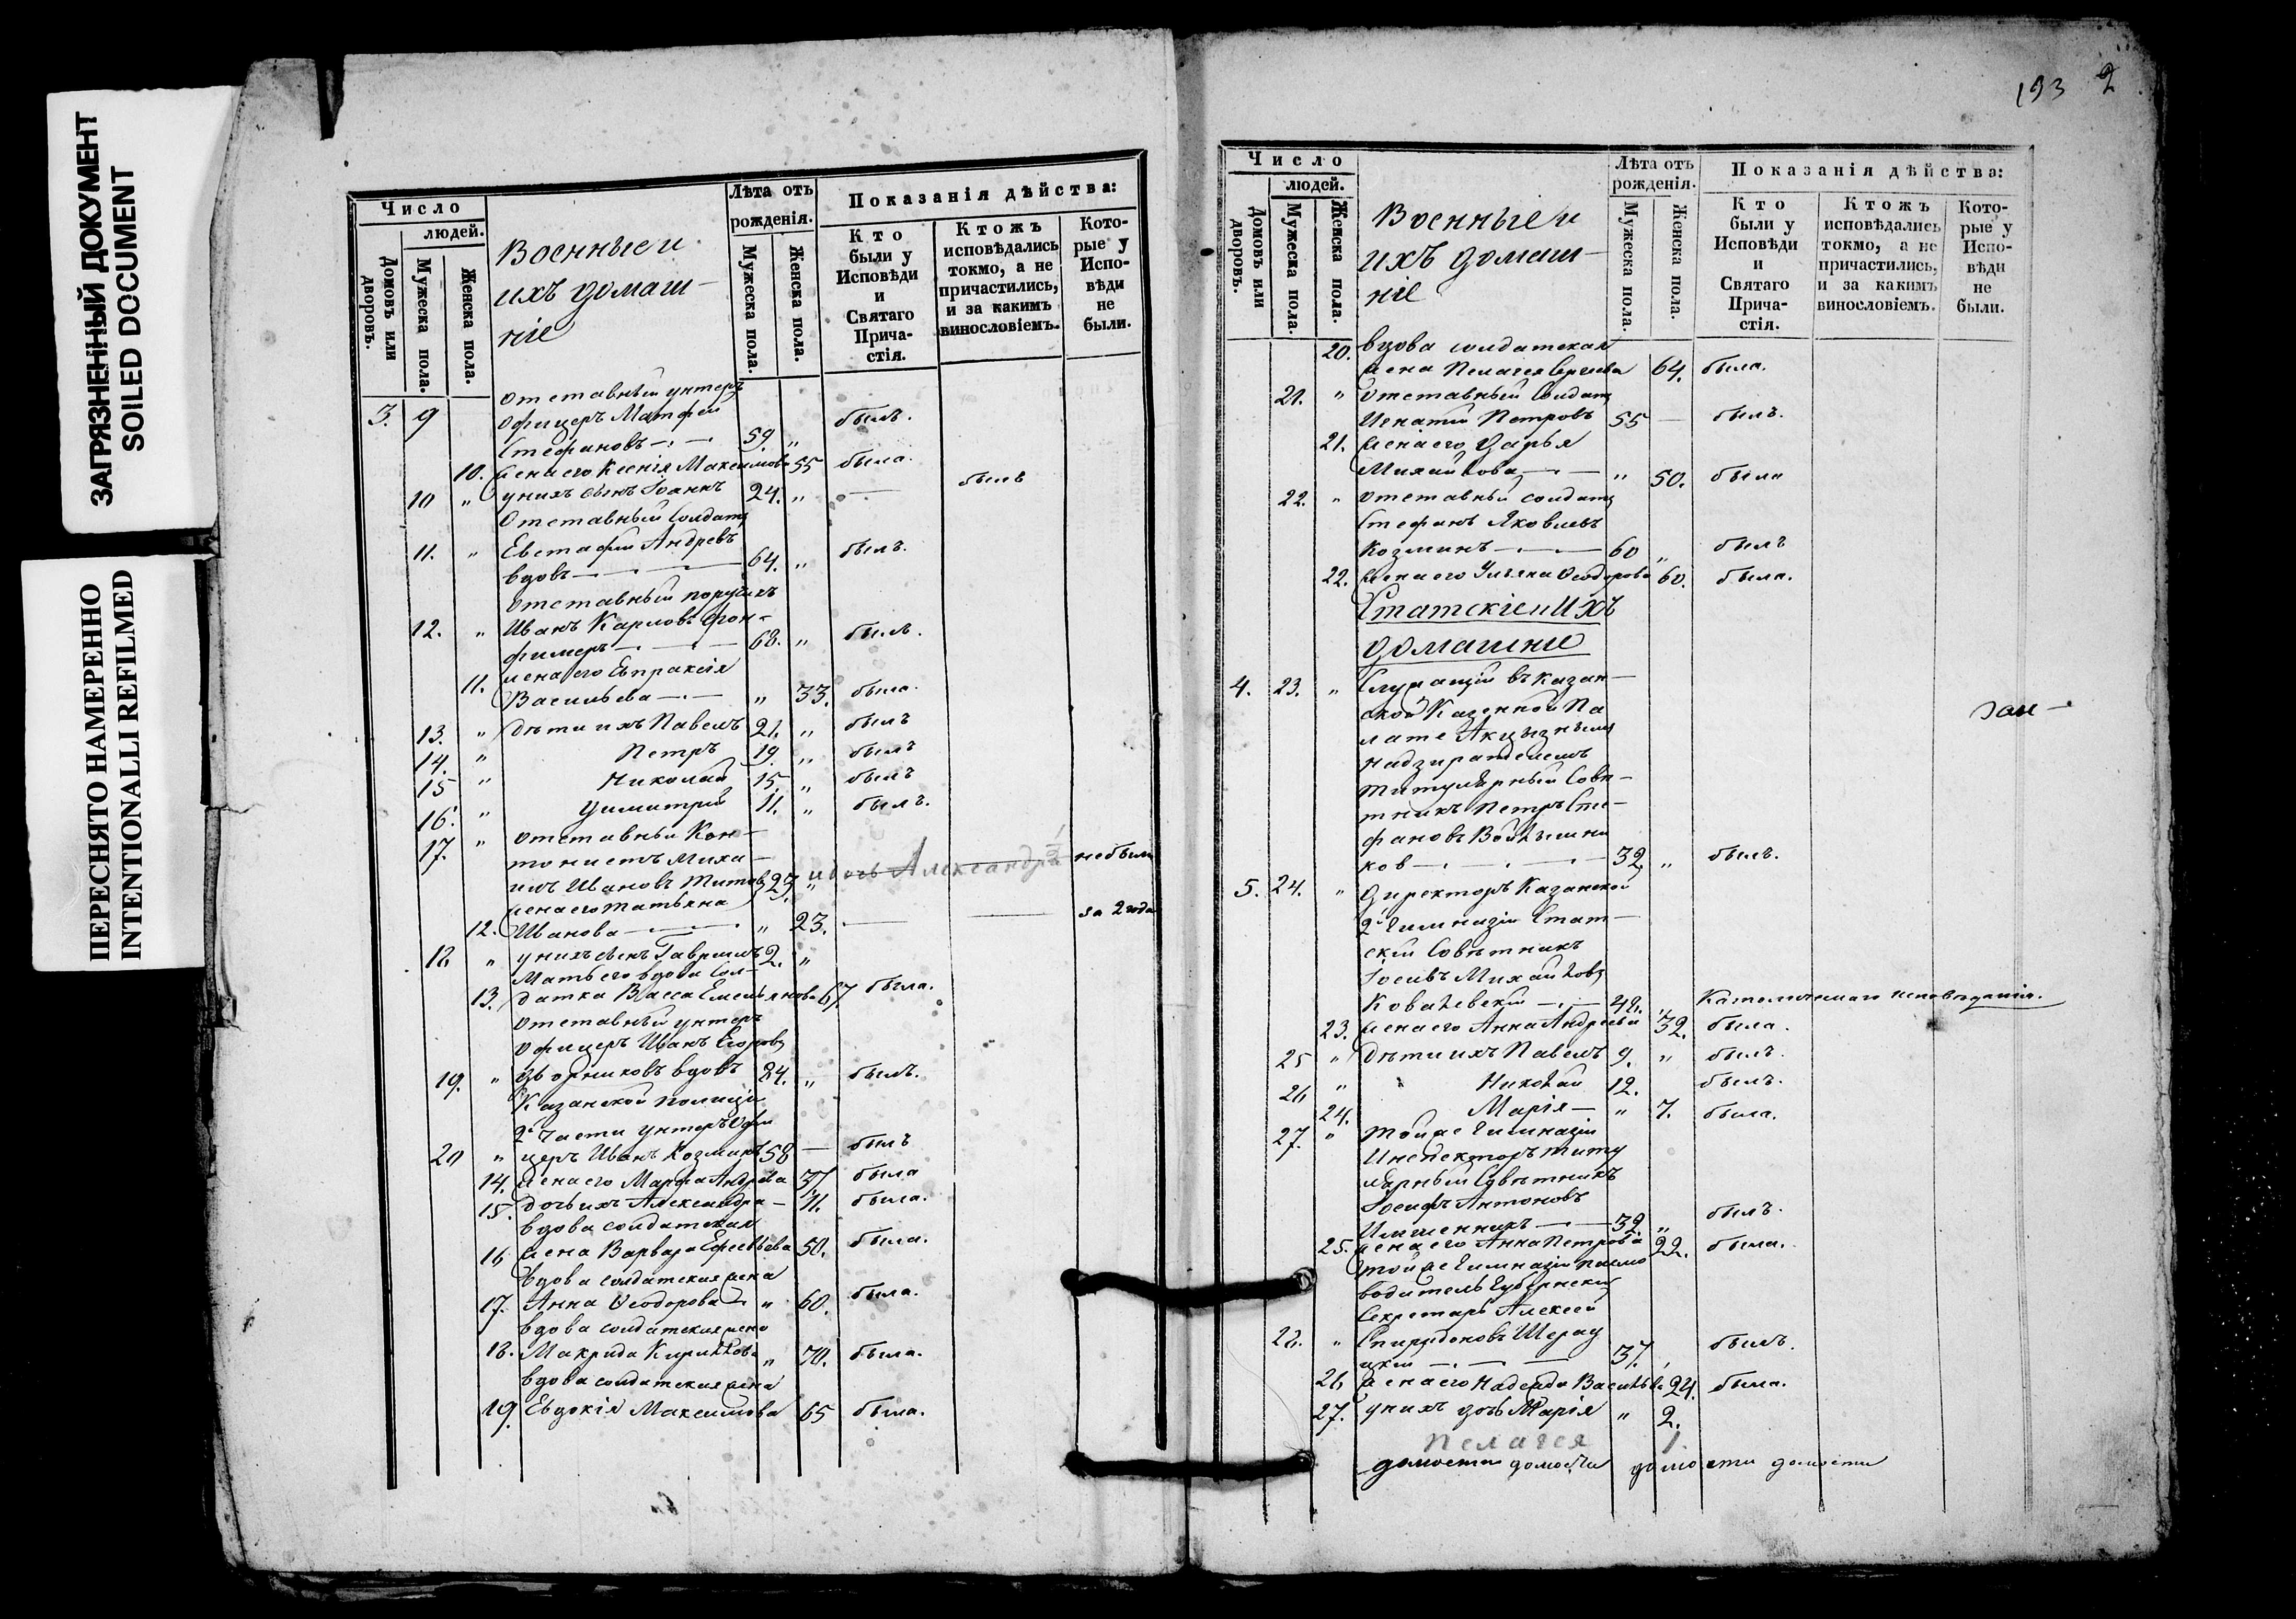 ЗАГРЯЗНЕННЫЙ ДОКУМЕНТ
SOILED DOCUMENT
ПЕРЕСНЯТО НАМЕРЕННО
INTENTIONALLI REFILMED
Число
людей.
Домовъ или дворовъ.
Мужеска пола.
Женска пола.
Военные и
ихъ домаш-
ніе
Лѣта отъ
рожденія.
Мужеска пола.
Женска пола.
Показанія дѣйства:
Кто
были у
Исповѣди
и
Святаго
Прича-
стія.
Ктожъ
исповѣдались
токмо, а не
причастились,
и за какимъ
винословіемъ.
Кото-
рые у
Испо-
вѣди
не
были.
отставный унтеръ
3. 9 офицеръ Матфей былъ.
Стефановъ 59. "
10. жена его Ксенія Максимова 55 была.
10 " у нихъ сынъ Іоаннъ 24. " — былъ
Отставный солдатъ
11. " Евстафій Андревъ
вдовъ 64. " былъ.
отставный поручикъ
12. " Иванъ Карловъ Фон-
фимеръ 68. " былъ.
11. жена его Евпраксія
Васильева " 33. была.
13. " дѣти ихъ Павелъ 21. " былъ
14. " Петръ 19. " былъ
15 " Николай 15. " былъ
16. " Димитрій 11. " былъ.
17. " отставный Кан-
тонистъ Миха-
илъ Ивановъ Титовъ 27. " и дочь Александра не были
жена его Татьяна
12. Иванова " 23. — — за 2 года
18 " у нихъ сынъ Гавріилъ 2. "
Мать его вдова Сол-
13. датка Васса Емельянова 67. была.
отставный унтеръ
офицеръ Иванъ Егоровъ
19. " вдовъ 24. " былъ.
Казанской полиціи
2й части унтеръ Офи
20 " церъ Иванъ Козминъ 58 — былъ
14. жена его Марфа Андрева 37 была
15. дочь ихъ Александра — 11. была.
вдова солдатская
16 жена Варвара 50. была.
вдова солдатская жена
17. Анна Ѳеодорова " 60. была.
вдова солдатская жена
18. Макрида Кирилова " 70. была.
вдова солдатская жена
19. Евдокія Максимова 65 была.
193 2
Число
людей.
Домовъ или дворовъ.
Мужеска пола.
Женска пола.
Военные и
ихъ домаш-
ніе
Лѣта отъ
рожденія.
Мужеска пола.
Женска пола.
Показанія дѣйства:
Кто
были у
Исповѣди
и
Святаго
Прича-
стія.
Ктожъ
исповѣдались
токмо, а не
причастились,
и за какимъ
винословіемъ.
Кото-
рые у
Испо-
вѣди
не
были.
20. вдова солдатская
жена Пелагея Сергѣева 64. была.
21. " Отставный Солдатъ
Игнатій Петровъ 55 — былъ.
21. жена его Дарья
Михайлова " 50. была
22. " отставный солдатъ
Стефанъ Яковлевъ
Козминъ 60 " былъ
22. жена его Ульяна Ѳеодорова 60. была.
Статскіе и Ихъ
домашніе
4. 23. " Служащій въ Казан-
ской Казенной Па
лате Акцызнымъ
надзирателемъ
титулярный Совѣ-
тникъ Петръ Сте-
фановъ
ков 32. " былъ.
5. 24. " Директоръ Казанской
2й Гимназіи Стат-
скій Совѣтникъ
Іосифъ Михайловъ
Ковалевскій 48. " Католическаго исповѣданія.
23. жена его Анна Андреева 32. была.
25 " дѣти ихъ Павелъ 9. " былъ.
26 " Николай 12. былъ.
24. Марія — " 7. была.
27. " Той же Гимназіи
Инспекторъ титу
лярный Совѣтникъ
Іосифъ Антоновъ
32. " былъ.
25. жена его Анна Петрова 22. была.
той же Гимназіи письмо
водитель Губернскій
Секретарь Алексей
28. " Спиридоновъ
37. былъ.
26 жена его Надежда Васильева 24. была.
27. у нихъ дочь Марія " 2.
Пелагея 1.